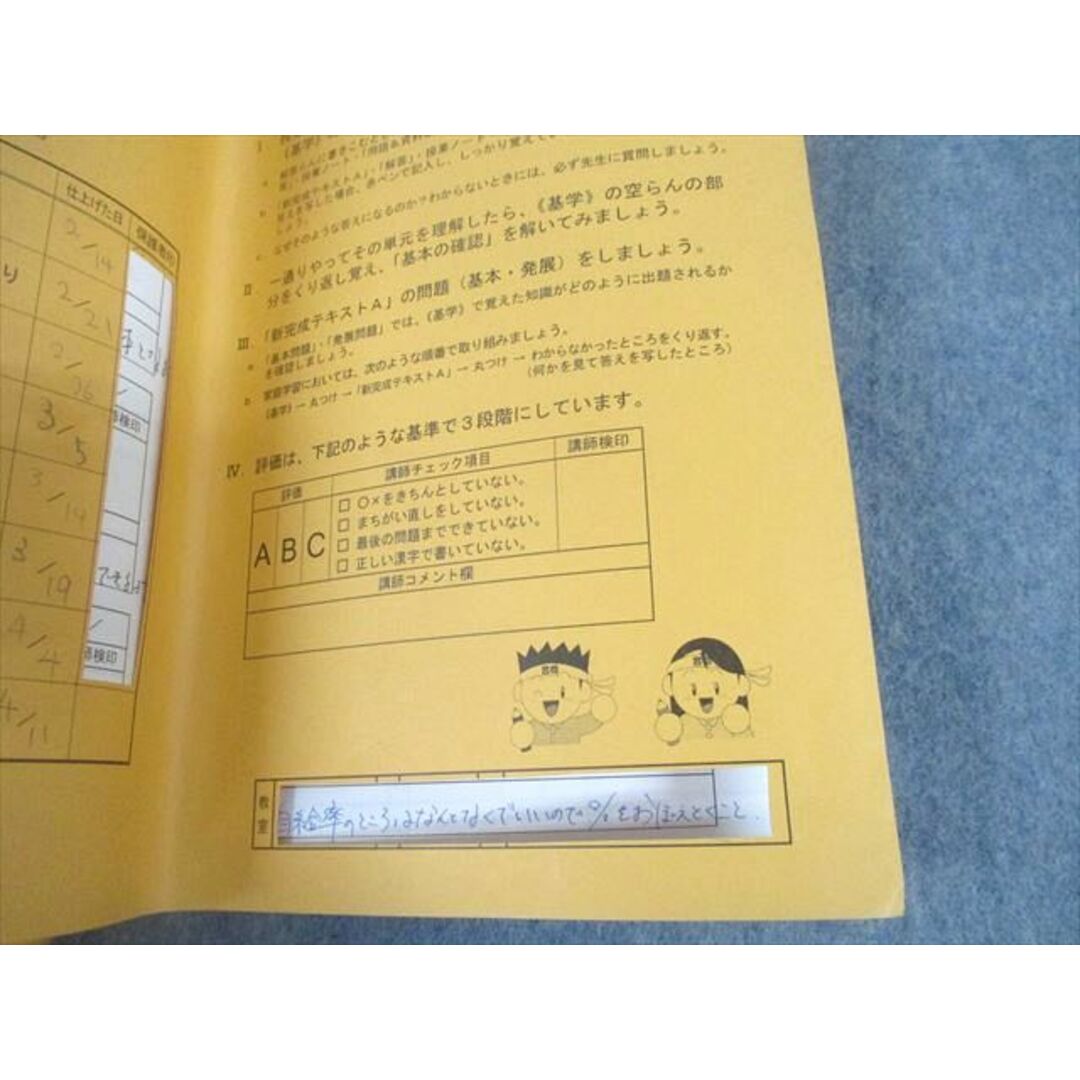 仕上げた日
保護者印
2/14
2/21
2/26
3/5
3/14
3/19
4/4
4/11
り
師検印
師検印
Ⅰ
a
b
c. なぜそのような答えになるのか?わからないときには、必ず先生に質問しましょう。
Ⅱ 一通りやってその単元を理解したら、《基学》の空らんの部
分をくり返し覚え、「基本の確認」を解いてみましょう。
Ⅲ.「新完成テキストA」の問題(基本・発展)をしましょう。
a 「基本問題」・「発展問題」では、《基学》で覚えた知識がどのように出題されるか
を確認しましょう。
b 家庭学習においては、次のような順番で取り組みましょう。
《基学》→丸つけ→「新完成テキストA」→丸つけ→わからなかったところをくり返す。
(何かを見て答えを写したところ)
Ⅳ. 評価は、下記のような基準で3段階にしています。
評価
講師チェック項目
講師検印
A B C
□ ○×をきちんとしていない。
□ まちがい直しをしていない。
□ 最後の問題までできていない。
□ 正しい漢字で書いていない。
講師コメント欄
教室
自給率のところはなんとなくでいいので%をおぼえとくこと.